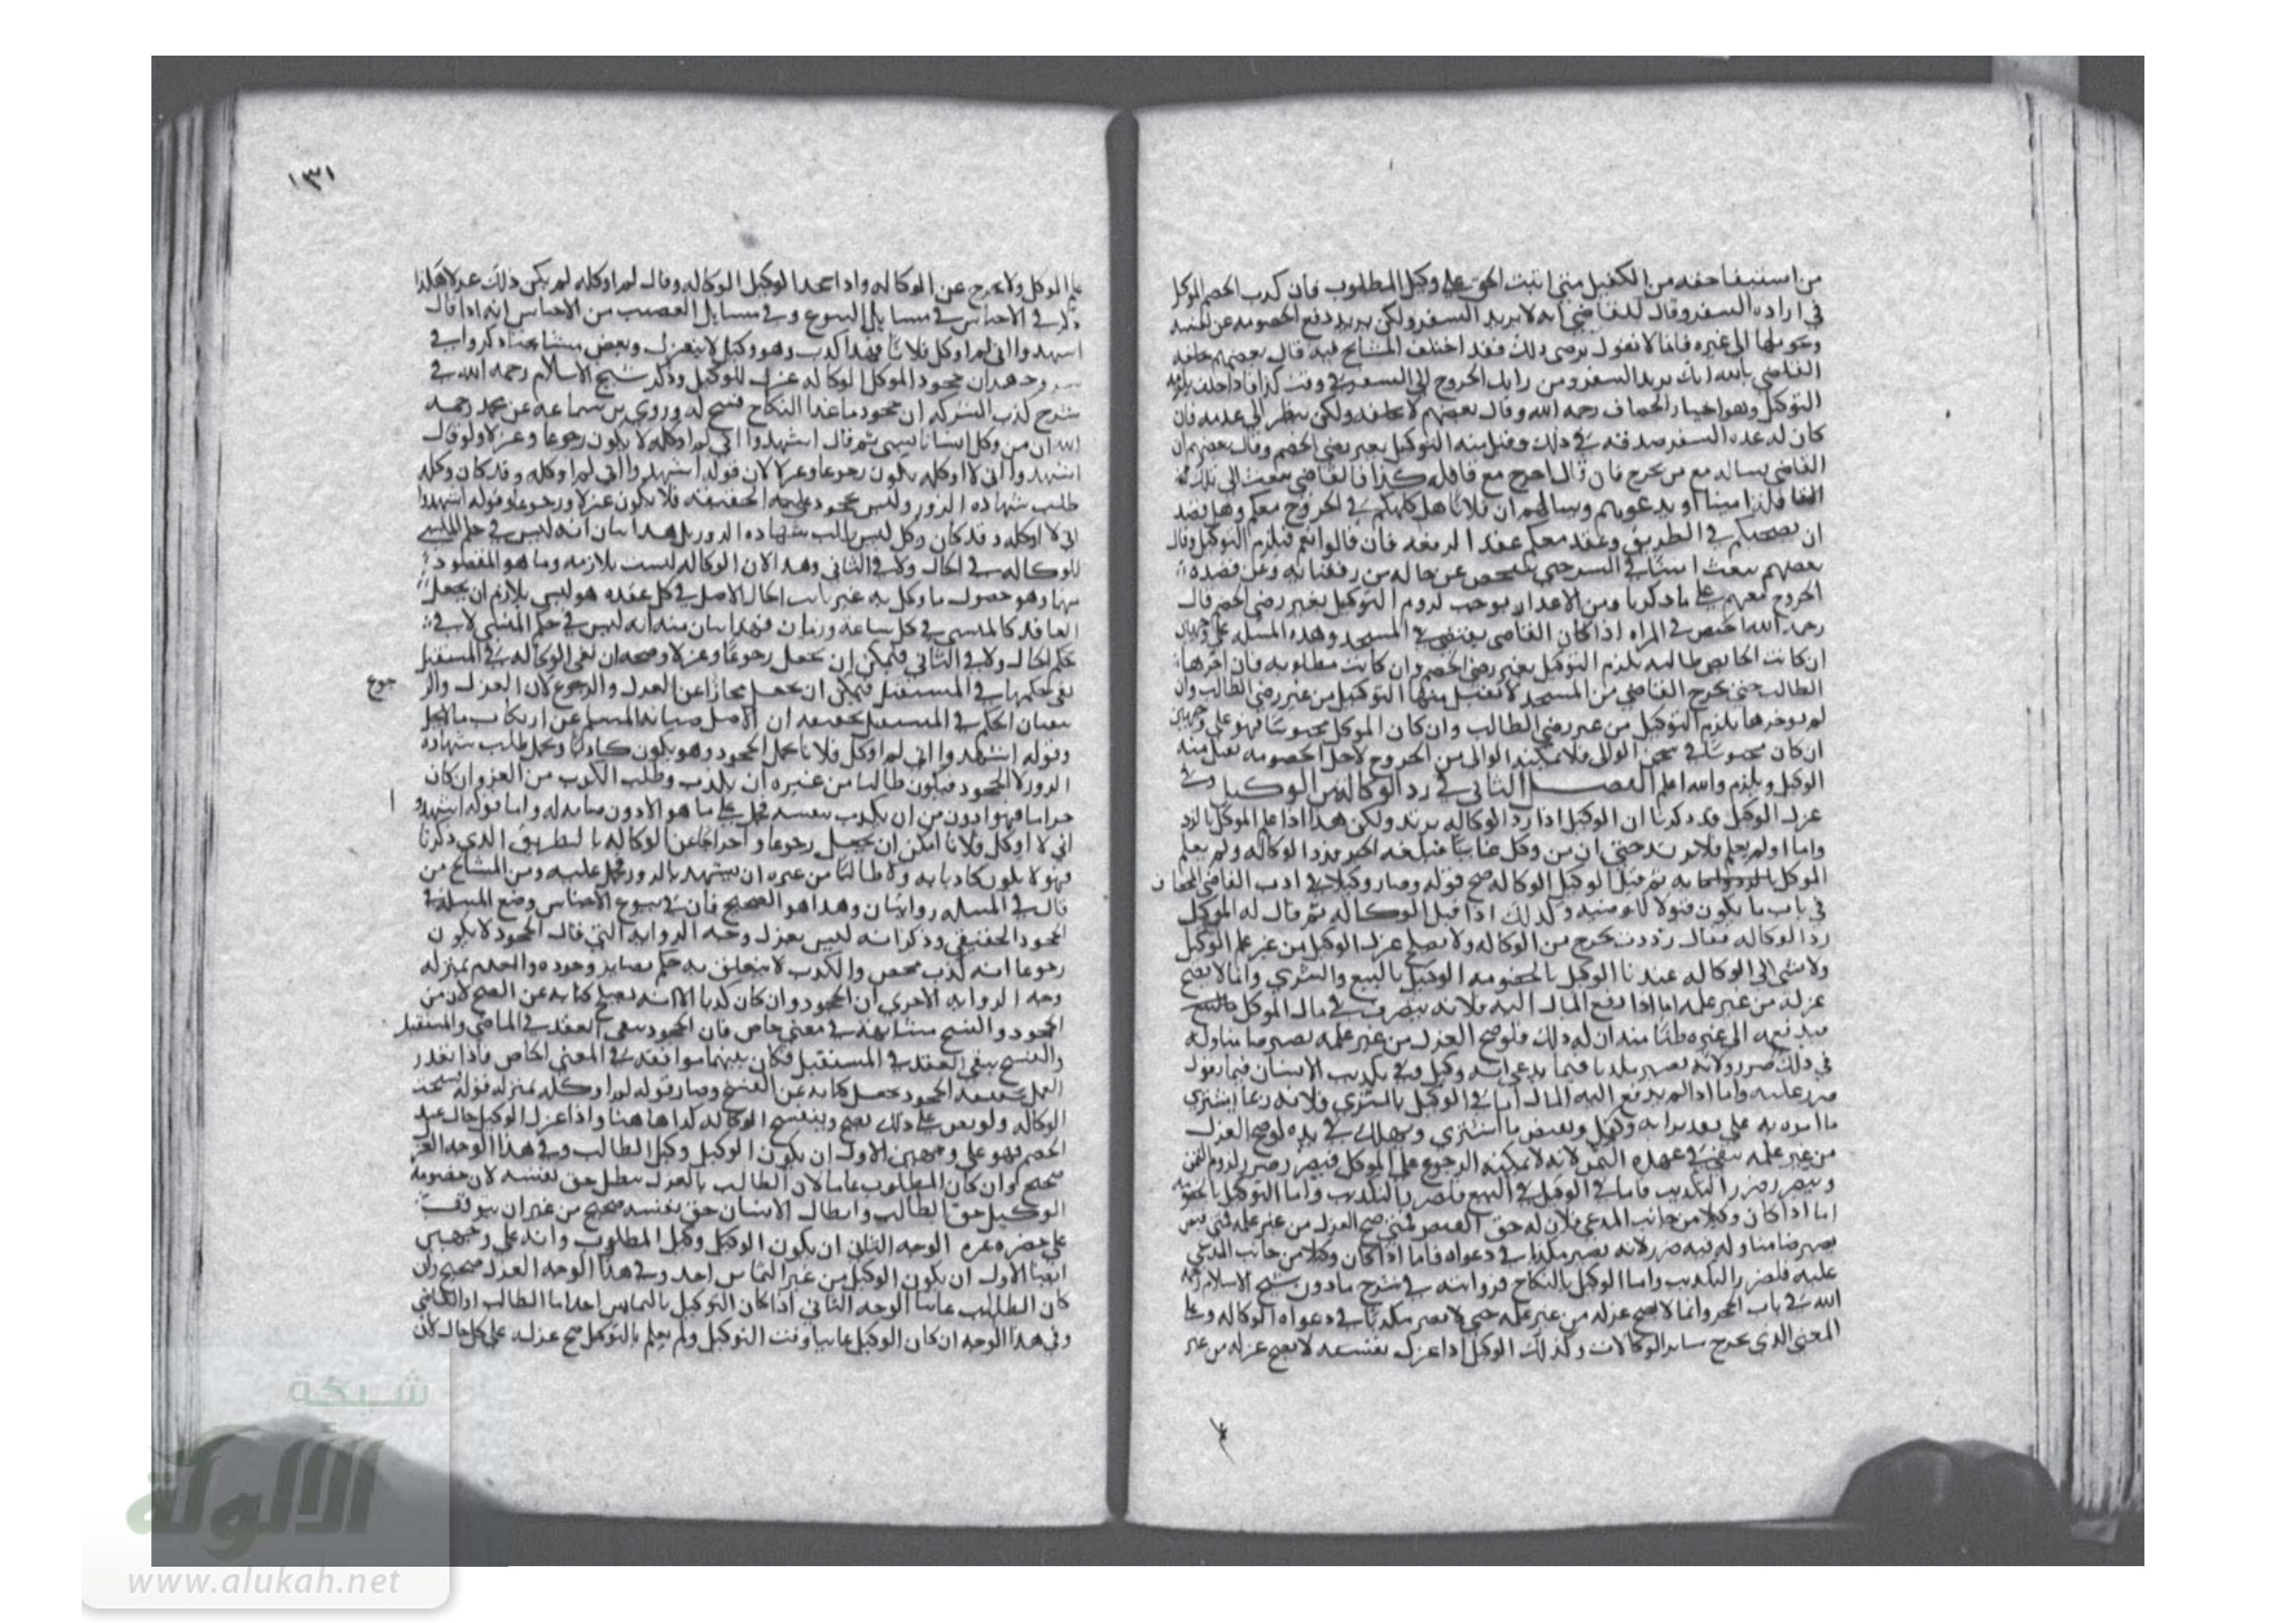 من استيفا حقه من الكفيل متى اثبت الحق على وكيل المطلوب فان كذب الخصم الموكل
في ارادة السفر وقال للقاضي انه لا يريد السفر ولكن يريد دفع الخصومة عن نفسه
وتحويلها الى غيره فانا لا نقول نرضى ذلك فقد اختلف المشايخ فيه قال بعضهم يحلفه
القاضي بالله انك تريد السفر ومن رايك الخروج الى السفر في وقت كذا فاذا حلف يلزم
التوكيل وهو اختيار الخصاف رحمه الله وقال بعضهم لا يحلفه ولكن ينظر الى عدته فان
كان له عدة السفر صدقه في ذلك وقبل منه التوكيل بغير رضى الخصم وقال بعضهم ان
القاضي يساله مع من يخرج فان قال اخرج مع قافلة كذا فالقاضي يبعث الى تلك
القافلة امينا او يدعوهم ويسالهم ان فلانا هل كلمكم في الخروج معكم وهل قصد
ان يصحبكم في الطريق وعقد معكم عقد الرفقة فان قالوا نعم فيلزم التوكيل وقال
بعضهم يبعث امينا في السر حتى يتفحص عن حاله من رفقايه وعن قصده
الخروج معهم على ما ذكرنا ومن الاعذار يوجب لزوم التوكيل بغير رضى الخصم قال
رحمه الله الحيض في المراة اذا كان القاضي يقضي في المسجد وهذه المسلة على وجهين
ان كانت الحايض طالبة يلزم التوكيل بغير رضى الخصم وان كانت مطلوبة فان اخرها
الطالب حتى يخرج القاضي من المسجد لا يقبل منها التوكيل من غير رضى الطالب وان
لم يوخرها يلزم التوكيل من غير رضى الطالب وان كان الموكل محبوسا فهو على وجهين
ان كان محبوسا في سجن الوالي فلا يمكنه الوالي من الخروج لاجل الخصومة يقبل منه
الوكيل ويلزم والله اعلم الفصل الثاني في رد الوكالة من الوكيل وفي
عزل الوكيل قد ذكرنا ان الوكيل اذا رد الوكالة يرتد ولكن هذا اذا علم الموكل بالرد
واما اذا لم يعلم فلا يرتد حتى ان من وكل غايبا فبلغه الخبر فرد الوكالة ولم يعلم
الموكل به ثم قبل الوكيل الوكالة صح قبوله وصار وكيلا في ادب القاضي للخصاف
في باب ما يكون قبولا للوصية وكذلك اذا قبل الوكالة ثم قال له الموكل
رد الوكالة فقال رددت يخرج من الوكالة ولا يصح عزل الوكيل من غير علم الوكيل
ولا تنتهي الوكالة عندنا الوكيل بالخصومة الوكيل بالبيع والشرى وانما لا يصح
عزله من غير علمه اما اذا دفع المال اليه فلانه يتصرف في مال الموكل
فيدفعه الى غيره ظنا منه ان له ذلك فلو صح العزل من غير علمه يصير ضامنا وله
في ذلك ضرر ولانه يصير مكذبا فيما يدعي انه وكيل وفي تكذيب الانسان فيما يقول
ضرر عليه واما اذا لم يدفع اليه المال اما في الوكيل بالشرى فلانه ربما يشتري
من غير علمه يبقى في عهدة الثمن لانه لا يمكنه الرجوع على الموكل فيتضرر ضرر لزوم الثمن
ويتضرر ضرر التكذيب فاما في الوكيل في البيع فلضرر التكذيب واما التوكيل بالخصومة
اما اذا كان وكيلا من جانب المدعي فلان له حق القبض فمتى صح العزل من غير علمه فمتى قبض
يصير ضامنا وله فيه ضرر لانه يصير مكذبا في دعواه فاما اذا كان وكيلا من جانب المدعى
عليه فلضرر التكذيب واما الوكيل بالنكاح فروايته في شرح ماذون شيخ الاسلام رحمه
الله في باب الحجر وانما لا يصح عزله من غير علمه حتى لا يصير مكذبا في دعواه الوكالة وعلى
المعنى الذي يخرج ساير الوكالات وكذلك الوكيل اذا عزل نفسه لا يصح عزله من غير
١٣١
علم الموكل ولا يخرج عن الوكالة واذا جحد الوكيل الوكالة وقال لم اوكله لم يكن ذلك عزلا هكذا
ذكر في الاجناس في مسايل البيوع وفي مسايل الغصب من الاجناس انه اذا قال
اشهدوا اني لم اوكل فلانا فهذا كذب وهو وكيل لا ينعزل وبعض مشايخنا ذكروا في
ان جحود الموكل الوكالة عزل للوكيل وذكر شيخ الاسلام رحمه الله في
شرح كتاب الشركة ان جحود ما عدا النكاح فسخ له وروى بن سماعة عن محمد رحمه
الله ان من وكل انسانا بشي ثم قال اشهدوا اني لم اوكله لا يكون رجوعا وعزلا ولو قال
اشهدوا اني لا اوكله يكون رجوعا وعزلا لان قوله اشهدوا اني لم اوكله وقد كان وكله
طلب شهادة الزور وليس بجحود على الحقيقة فلا يكون عزلا ورجوعا وقوله اشهدوا
اني لا اوكله وقد كان وكل ليس طلب شهادة الزور بل هذا بيان انه ليس في حكم
للوكالة في الحال ولا في الثاني وهذا لان الوكالة ليست بلازمة وما هو المقصود
منها وهو حصول ما وكل به غير ثابت الحال الاصل في كل عقده هو ليس بلازم ان يجعل
العاقد كالمنشى في كل ساعة وزمان فهذا بيان منه انه ليس في حكم المنشى لا في
حكم الحال ولا في الثاني فيمكن ان يجعل رجوعا وعزلا وصحة ان نفي الوكالة في المستقبل
نفي حكمها في المستقبل فيمكن ان يجعل مجازا عن العزل والرجوع لان العزل والر
جوع
ينفيان الحكم في المستقبل بحقيقة ان الاصل صيانة المسلم عن ارتكاب ما لا يحل
وقوله اشهدوا اني لم اوكل فلانا يحتمل الجحود وهو يكون كاذبا ويحتمل طلب شهادة
الزور لا الجحود فيكون طالبا من غيره ان يكذب وطلب الكذب من الغير وان كان
حراما فهو ادون من ان يكذب بنفسه فحمل على ما هو الادون صيانة له واما قوله اشهدو
ا
اني لا اوكل فلانا امكن ان يجعل رجوعا واخراجا عن الوكالة بالطريق الذي ذكرنا
فهو لا يكون كاذبا به ولا طالبا من غيره ان يشهد بالزور فحمل عليه ومن المشايخ من
قال في المسلة روايتان وهذا هو الصحيح فان في بيوع الاجناس وضع المسلة في
الجحود الحقيقي وذكر انه ليس بعزل وجه الرواية التي قال الجحود لا يكون
رجوعا انه كذب محض والكذب لا يتعلق به حكم فصار وجوده والعدم بمنزلة
وجه الرواية الاخرى ان الجحود وان كان كذبا الا انه يصلح كناية عن الفسخ لان من
الجحود والفسخ مشابهة في معنى خاص فان الجحود ينفي العقد في الماضي والمستقبل
والفسخ ينفي العقد في المستقبل فكان بينهما موافقة في المعنى الخاص فاذا تعذر
العمل بحقيقة الجحود يجعل كناية عن الفسخ وصار قوله لم اوكله بمنزلة قوله فسخت
الوكالة ولو نص على ذلك يصح وينفسخ الوكالة كذا هاهنا واذا عزل الوكيل حال غيبة
الخصم فهو على وجهين الاول ان يكون الوكيل وكيل الطالب وفي هذا الوجه العزل
صحيح وان كان المطلوب غايبا لان الطالب بالعزل يبطل حق نفسه لان خصومة
الوكيل حق الطالب وابطال الانسان حق نفسه صحيح من غير ان يتوقف
على حضرة غيره الوجه الثاني ان يكون الوكيل وكيل المطلوب وانه على وجهين
ايضا الاول ان يكون الوكيل من غير التماس احد وفي هذا الوجه العزل صحيح وان
كان الطالب غايبا الوجه الثاني اذا كان التوكيل بالتماس احد اما الطالب او القاضي
وفي هذا الوجه ان كان الوكيل غايبا وقت التوكيل ولم يعلم بالتوكيل صح عزله على كل حال لان
شبكة
الألوكة
www.alukah.net